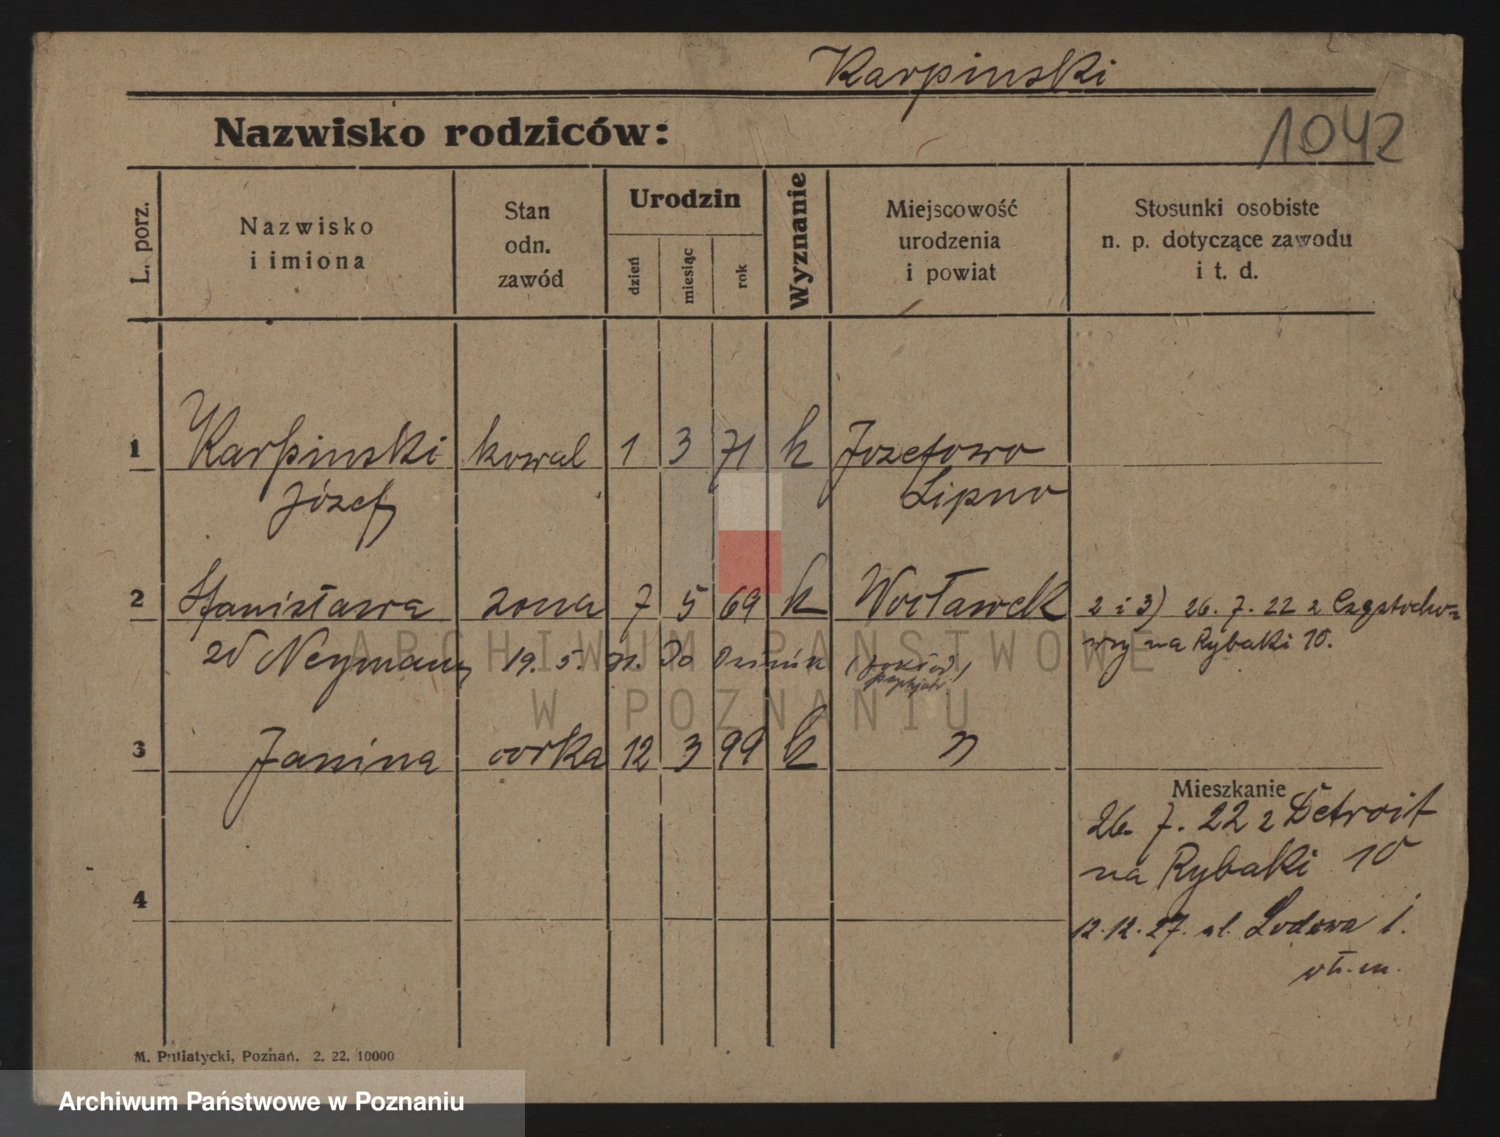 Karpinski
Nazwisko rodziców:
1042
L. porz.
Nazwisko
i imiona
Stan
odn.
zawód
Urodzin
dzień
miesiąc
rok
Wyznanie
Miejscowość
urodzenia
i powiat
Stosunki osobiste
n. p. dotyczące zawodu
i t. d.
1 Karpinski kowal 1 3 71 k Jozefowo
Józef Lipno
2 Stanisława zona 7 5 69 k Wocławek 2 i 3) 26. 7. 22 z Częstocho-
zd Neymann 19. 5. Do wy na Rybaki 10.
3 Janina corka 12 3 99 k "
Mieszkanie
26. 7. 22 z Detroit
na Rybaki 10
4
12.12.27. ul. Lodowa 1.
M. Putiatycki, Poznań. 2. 22. 10000
ARCHIWUM PAŃSTWOWE
W POZNANIU
Archiwum Państwowe w Poznaniu